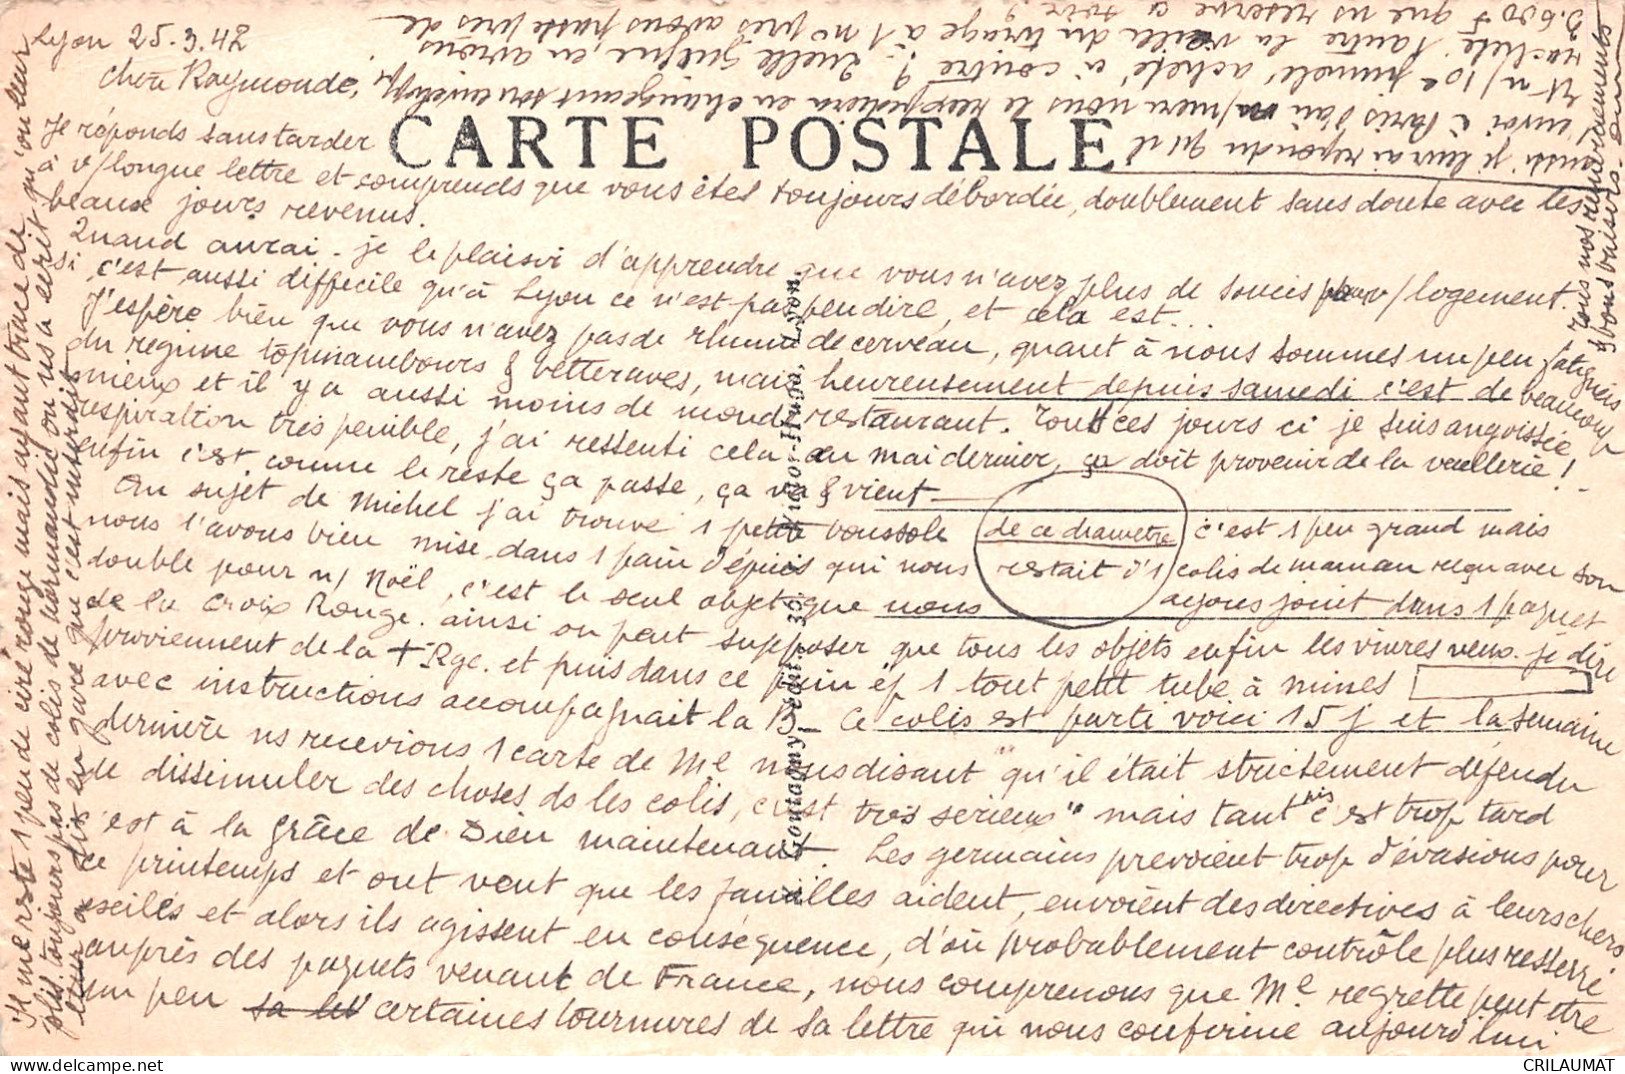 Lyon 25.3.42
Chère Raymonde,
CARTE POSTALE
Je réponds sans tarder
à v/longue lettre et comprends que vous êtes toujours débordée, doublement sans doute avec les
beaux jours revenus.
Quand aurai-je le plaisir d'apprendre que vous n'avez plus de soucis pour v/logement.
si c'est aussi difficile qu'à Lyon ce n'est pas peu dire, et cela est...
J'espère bien que vous n'avez pas de rhume de cerveau, quant à nous sommes un peu fatigués
du régime topinambours & betteraves, mais heureusement depuis samedi c'est de beaucoup
mieux et il y a aussi moins de monde restaurant. Tous ces jours ci je suis angoissée,
respiration très pénible, j'ai ressenti cela au mai dernier, ça doit provenir de la vieillerie!
enfin c'est comme le reste ça passe, ça va & vient
Au sujet de Michel j'ai trouvé 1 petite boussole de ce diamètre c'est 1 peu grand mais
nous l'avons bien mise dans 1 pain d'épices qui nous restait d'1 colis de maman reçu avec son
double pour n/ Noël, c'est le seul objet que nous ayons joint dans 1 paquet
de la Croix Rouge. ainsi on peut supposer que tous les objets enfin les vivres veux-je dire
proviennent de la + Rge. et puis dans ce pain ép 1 tout petit tube à mines
avec instructions accompagnait la B/ Ce colis est parti voici 15 j et la semaine
dernière ns recevions 1 carte de Mel nous disant "qu'il était strictement défendu
de dissimuler des choses ds les colis, c'est très sérieux" mais tant pis c'est trop tard
c'est à la grâce de Dieu maintenant. Les germains prévoient trop d'évasions pour
ce printemps et ont vent que les familles aident, envoient des directives à leurs chers
exilés et alors ils agissent en conséquence, d'où probablement contrôle plus resserré
auprès des paquets venant de France, nous comprenons que Mel regrette peut être
un peu certaines tournures de sa lettre qui nous confirme aujourd'hui
Il me reste 1 peu de cire rouge mais ayant trace de qu'on leur
plus toujours pas de colis de Normandie ou ns a écrit
c'est interdit
aussi je leur ai répondu qu'il
envoi à Paris d'où m/mère nous le réexpédiera en changeant son enveloppe
Et n/10e jumelé, acheté ci contre? Quelle guigne, en avions
racheté 1 autre la veille du tirage à 1 no près avons passé près de
que ns réserve ce soir?
Tous nos remerciements
& bons baisers
Goutagny, édit., 30, Victor-Hugo, Lyon.
CRILAUMAT